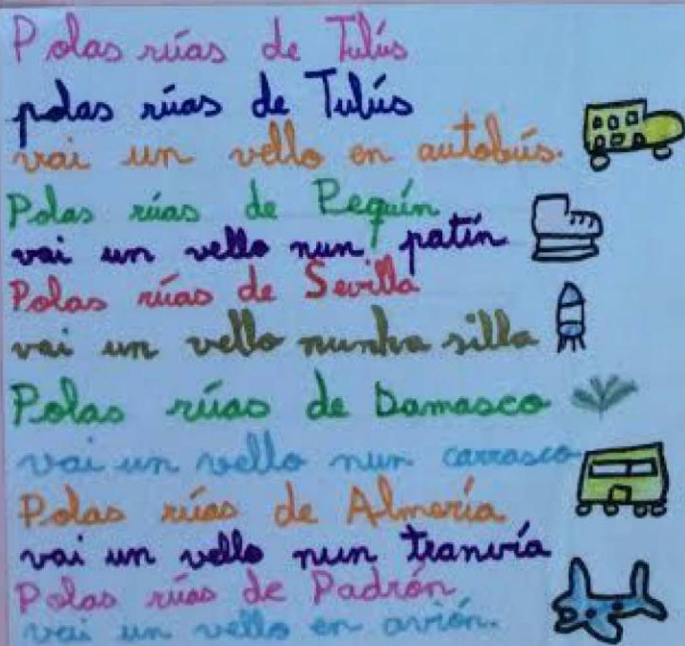 Polas rúas de Tulús
polas rúas de Tulús
vai un vello en autobús.
Polas rúas de Pequín
vai un vello nun patín
Polas rúas de Sevilla
vai un vello nunha silla
Polas rúas de Damasco
vai un vello nun carrasco
Polas rúas de Almería
vai un vello nun tranvía
Polas rúas de Padrón
vai un vello en avión.